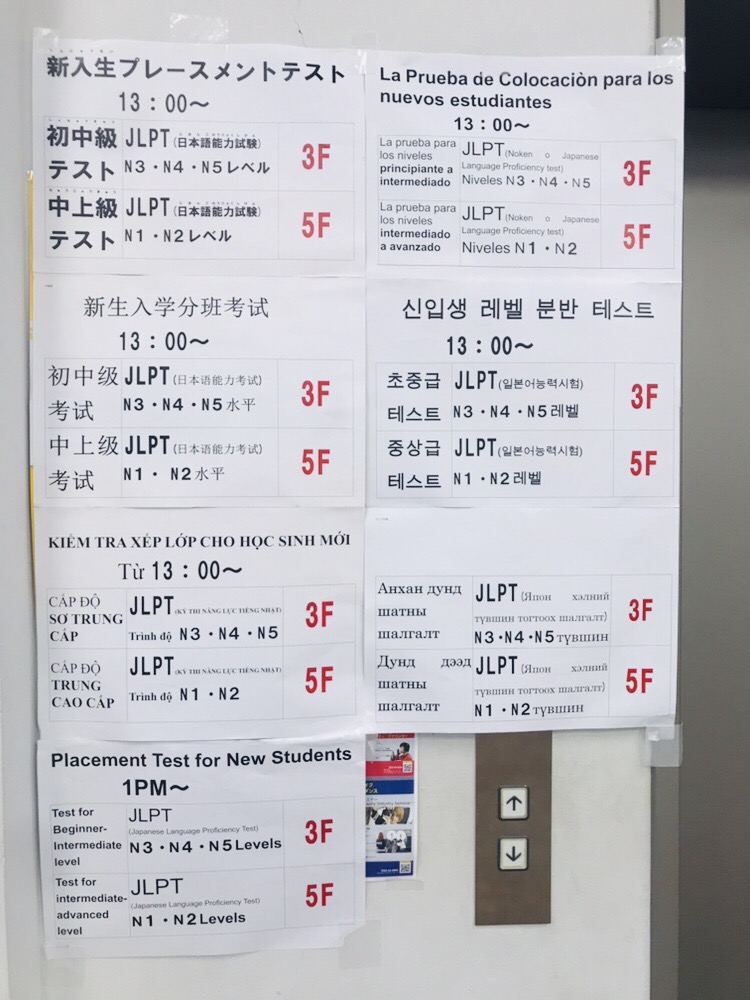 新入生プレースメントテスト
13：00～
初中級
テスト
JLPT(日本語能力試験)
N3・N4・N5レベル
3F
中上級
テスト
JLPT(日本語能力試験)
N1・N2レベル
5F
La Prueba de Colocaciòn para los
nuevos estudiantes
13：00～
La prueba para
los niveles
principiante a
intermediado
JLPT(Noken o Japanese
Language Proficiency test)
Niveles N3・N4・N5
3F
La prueba para
los niveles
intermediado
a avanzado
JLPT(Noken o Japanese
Language Proficiency test)
Niveles N1・N2
5F
新生入学分班考试
13：00～
初中级
考试
JLPT(日本语能力考试)
N3・N4・N5水平
3F
中上级
考试
JLPT(日本语能力考试)
N1・ N2水平
5F
신입생 레벨 분반 테스트
13：00～
초중급
테스트
JLPT(일본어능력시험)
N3・N4・N5레벨
3F
중상급
테스트
JLPT(일본어능력시험)
N1・N2레벨
5F
KIỂM TRA XẾP LỚP CHO HỌC SINH MỚI
Từ 13：00～
CẤP ĐỘ
SƠ TRUNG
CẤP
JLPT(KỲ THI NĂNG LỰC TIẾNG NHẬT)
Trình độ N3・N4・N5
3F
CẤP ĐỘ
TRUNG
CAO CẤP
JLPT(KỲ THI NĂNG LỰC TIẾNG NHẬT)
Trình độ N1・N2
5F
Анхан дунд
шатны
шалгалт
JLPT(Япон хэлний
түвшин тогтоох шалгалт)
N3・N4・N5түвшин
3F
Дунд дээд
шатны
шалгалт
JLPT(Япон хэлний
түвшин тогтоох шалгалт)
N1・N2түвшин
5F
Placement Test for New Students
1PM～
Test for
Beginner-
Intermediate
level
JLPT
(Japanese Language Proficiency Test)
N3・N4・N5Levels
3F
Test for
intermediate-
advanced
level
JLPT
(Japanese Language Proficiency Test)
N1・N2Levels
5F